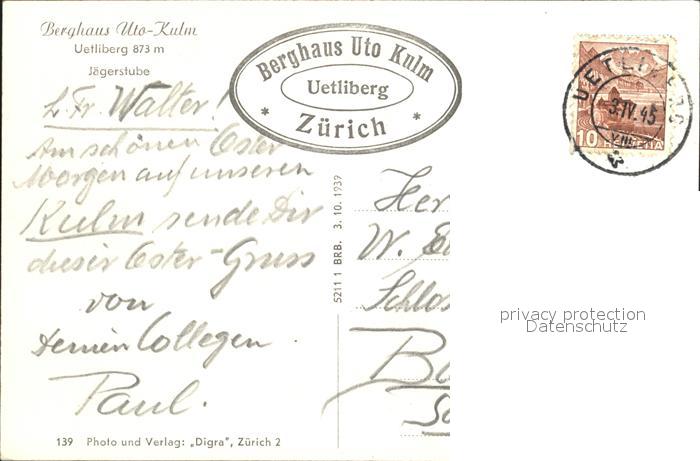 Berghaus Uto-Kulm
Uetliberg 873 m
Jägerstube
Berghaus Uto Kulm
Uetliberg
* Zürich *
UETLIBERG
3.IV.45
10 HELVETIA
L. Fr. Walter!
Am schönen Oster
Morgen auf unseren
Kulm sende Dir
dieser Oster-Gruss
von
Deinen Collegen
Paul.
5211 1 BRB. 3. 10. 1939
Her
W.
Schlos
privacy protection
Datenschutz
139 Photo und Verlag: „Digra", Zürich 2